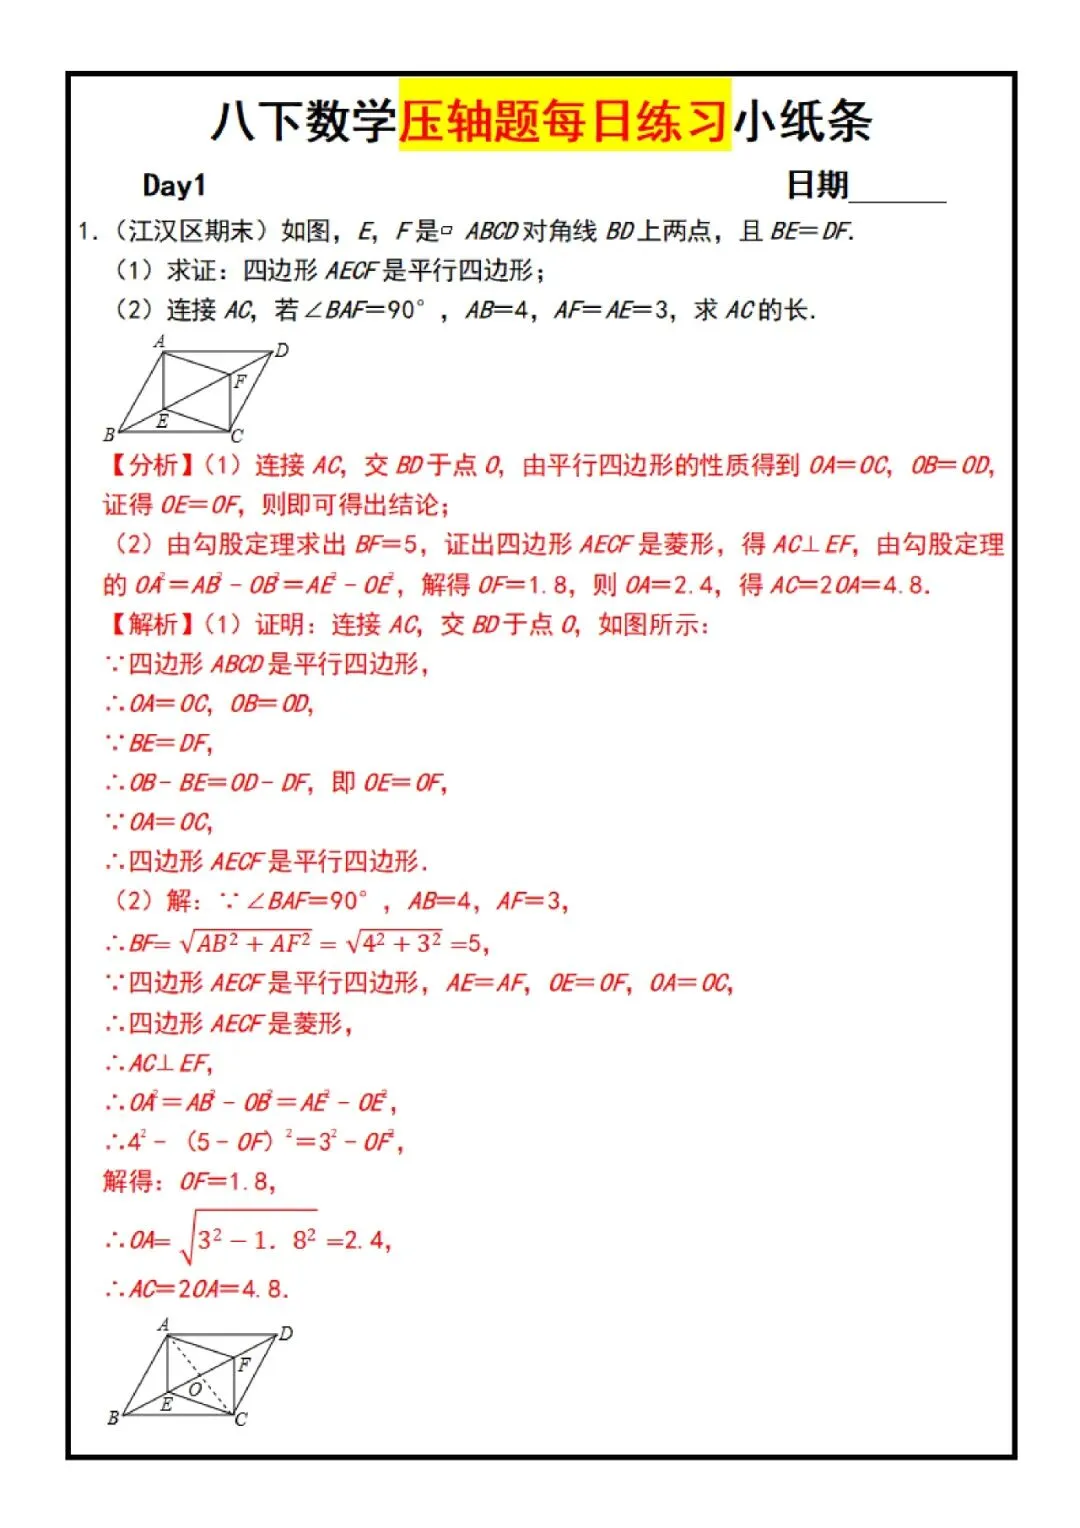 八下数学压轴题每日练习小纸条
Day1 日期______
1.（江汉区期末）如图，E，F是▱ ABCD对角线BD上两点，且BE＝DF．
（1）求证：四边形AECF是平行四边形；
（2）连接AC，若∠BAF＝90°，AB＝4，AF＝AE＝3，求AC的长．
A
D
F
E
B
C
【分析】（1）连接AC，交BD于点O，由平行四边形的性质得到OA＝OC，OB＝OD，
证得OE＝OF，则即可得出结论；
（2）由勾股定理求出BF＝5，证出四边形AECF是菱形，得AC⊥EF，由勾股定理
的OA²＝AB²﹣OB²＝AE²﹣OE²，解得OF＝1.8，则OA＝2.4，得AC＝2OA＝4.8．
【解析】（1）证明：连接AC，交BD于点O，如图所示：
∵四边形ABCD是平行四边形，
∴OA＝OC，OB＝OD，
∵BE＝DF，
∴OB﹣BE＝OD﹣DF，即OE＝OF，
∵OA＝OC，
∴四边形AECF是平行四边形．
（2）解：∵∠BAF＝90°，AB＝4，AF＝3，
∴BF= √(AB² + AF²) = √(4² + 3²) =5，
∵四边形AECF是平行四边形，AE＝AF，OE＝OF，OA＝OC，
∴四边形AECF是菱形，
∴AC⊥EF，
∴OA²＝AB²﹣OB²＝AE²﹣OE²，
∴4²﹣（5﹣OF）²＝3²﹣OF²，
解得：OF＝1.8，
∴OA= √(3² − 1．8²) =2.4，
∴AC＝2OA＝4.8．
A
D
F
O
E
B
C